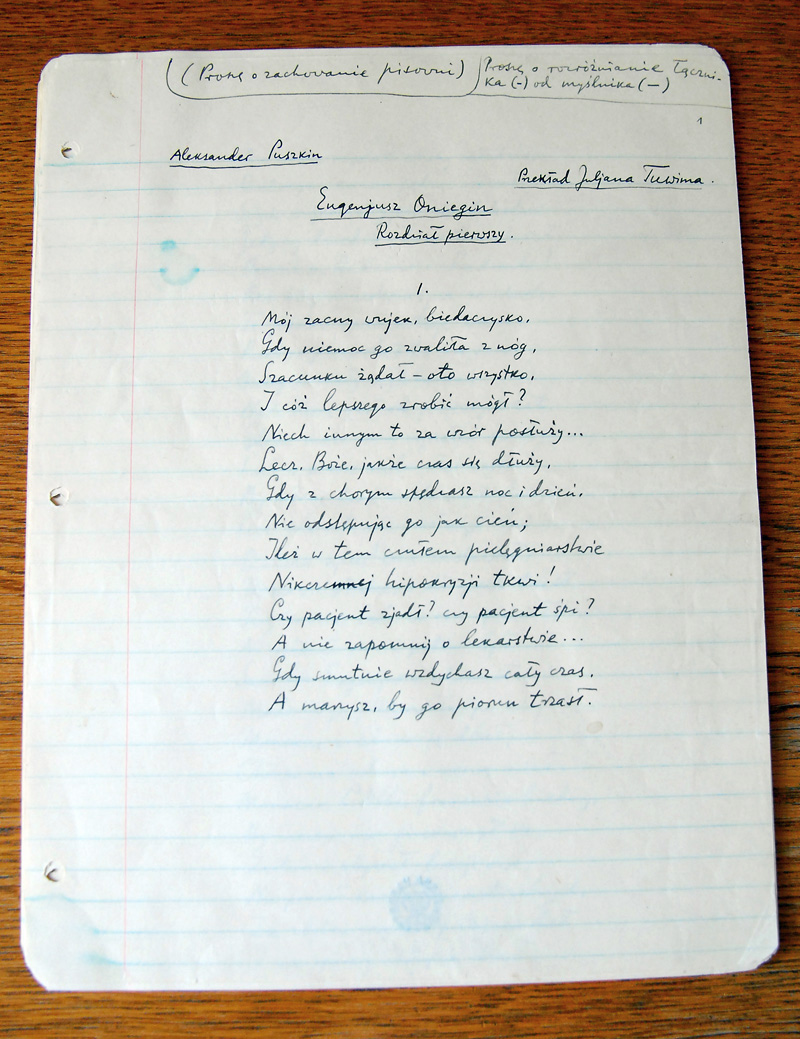 (Proszę o zachowanie pisowni)
Proszę o rozróżnianie łączni-
ka (-) od myślnika (—)
1
Aleksander Puszkin
Przekład Juljana Tuwima.
Eugenjusz Oniegin
Rozdział pierwszy.
1.
Mój zacny wujek, biedaczysko,
Gdy niemoc go zwaliła z nóg,
Szacunku żądał – oto wszystko,
I cóż lepszego zrobić mógł?
Niech innym to za wzór posłuży...
Lecz, Boże, jakże czas się dłuży,
Gdy z chorym spędzasz noc i dzień,
Nie odstępując go jak cień;
Ileż w tem czułem pielęgniarstwie
Nikczemnej hipokryzji tkwi!
Czy pacjent zjadł? czy pacjent śpi?
A nie zapomnij o lekarstwie...
Gdy smutnie wzdychasz cały czas,
A marzysz, by go piorun trzasł.